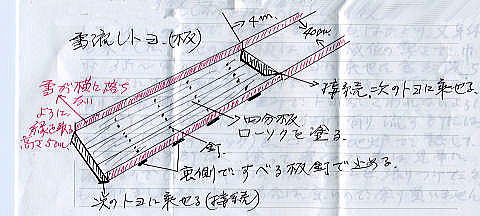 雪流しトヨ(板)
4m.
40cm
雪が横に落ち
ない
ように
高さ5cm
接続.次のトヨに乗せる
四分板
ローソクを塗る.
釘.
裏側で.すべる板釘で止める.
次のトヨに乗せる(接続)